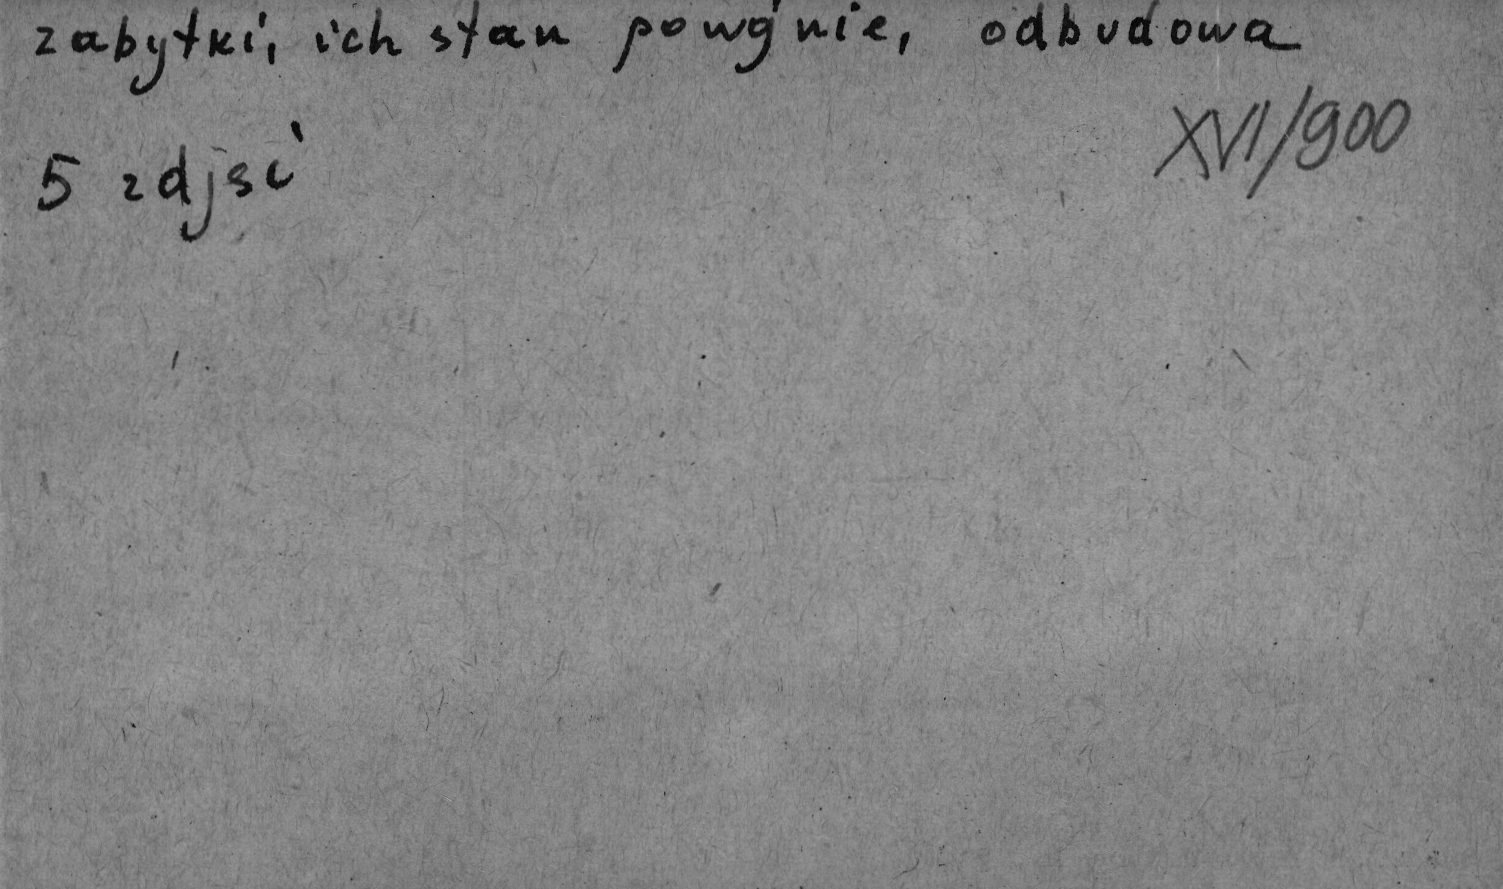 zabytki, ich stan powojnie, odbudowa
XVI/900
5 zdjęć